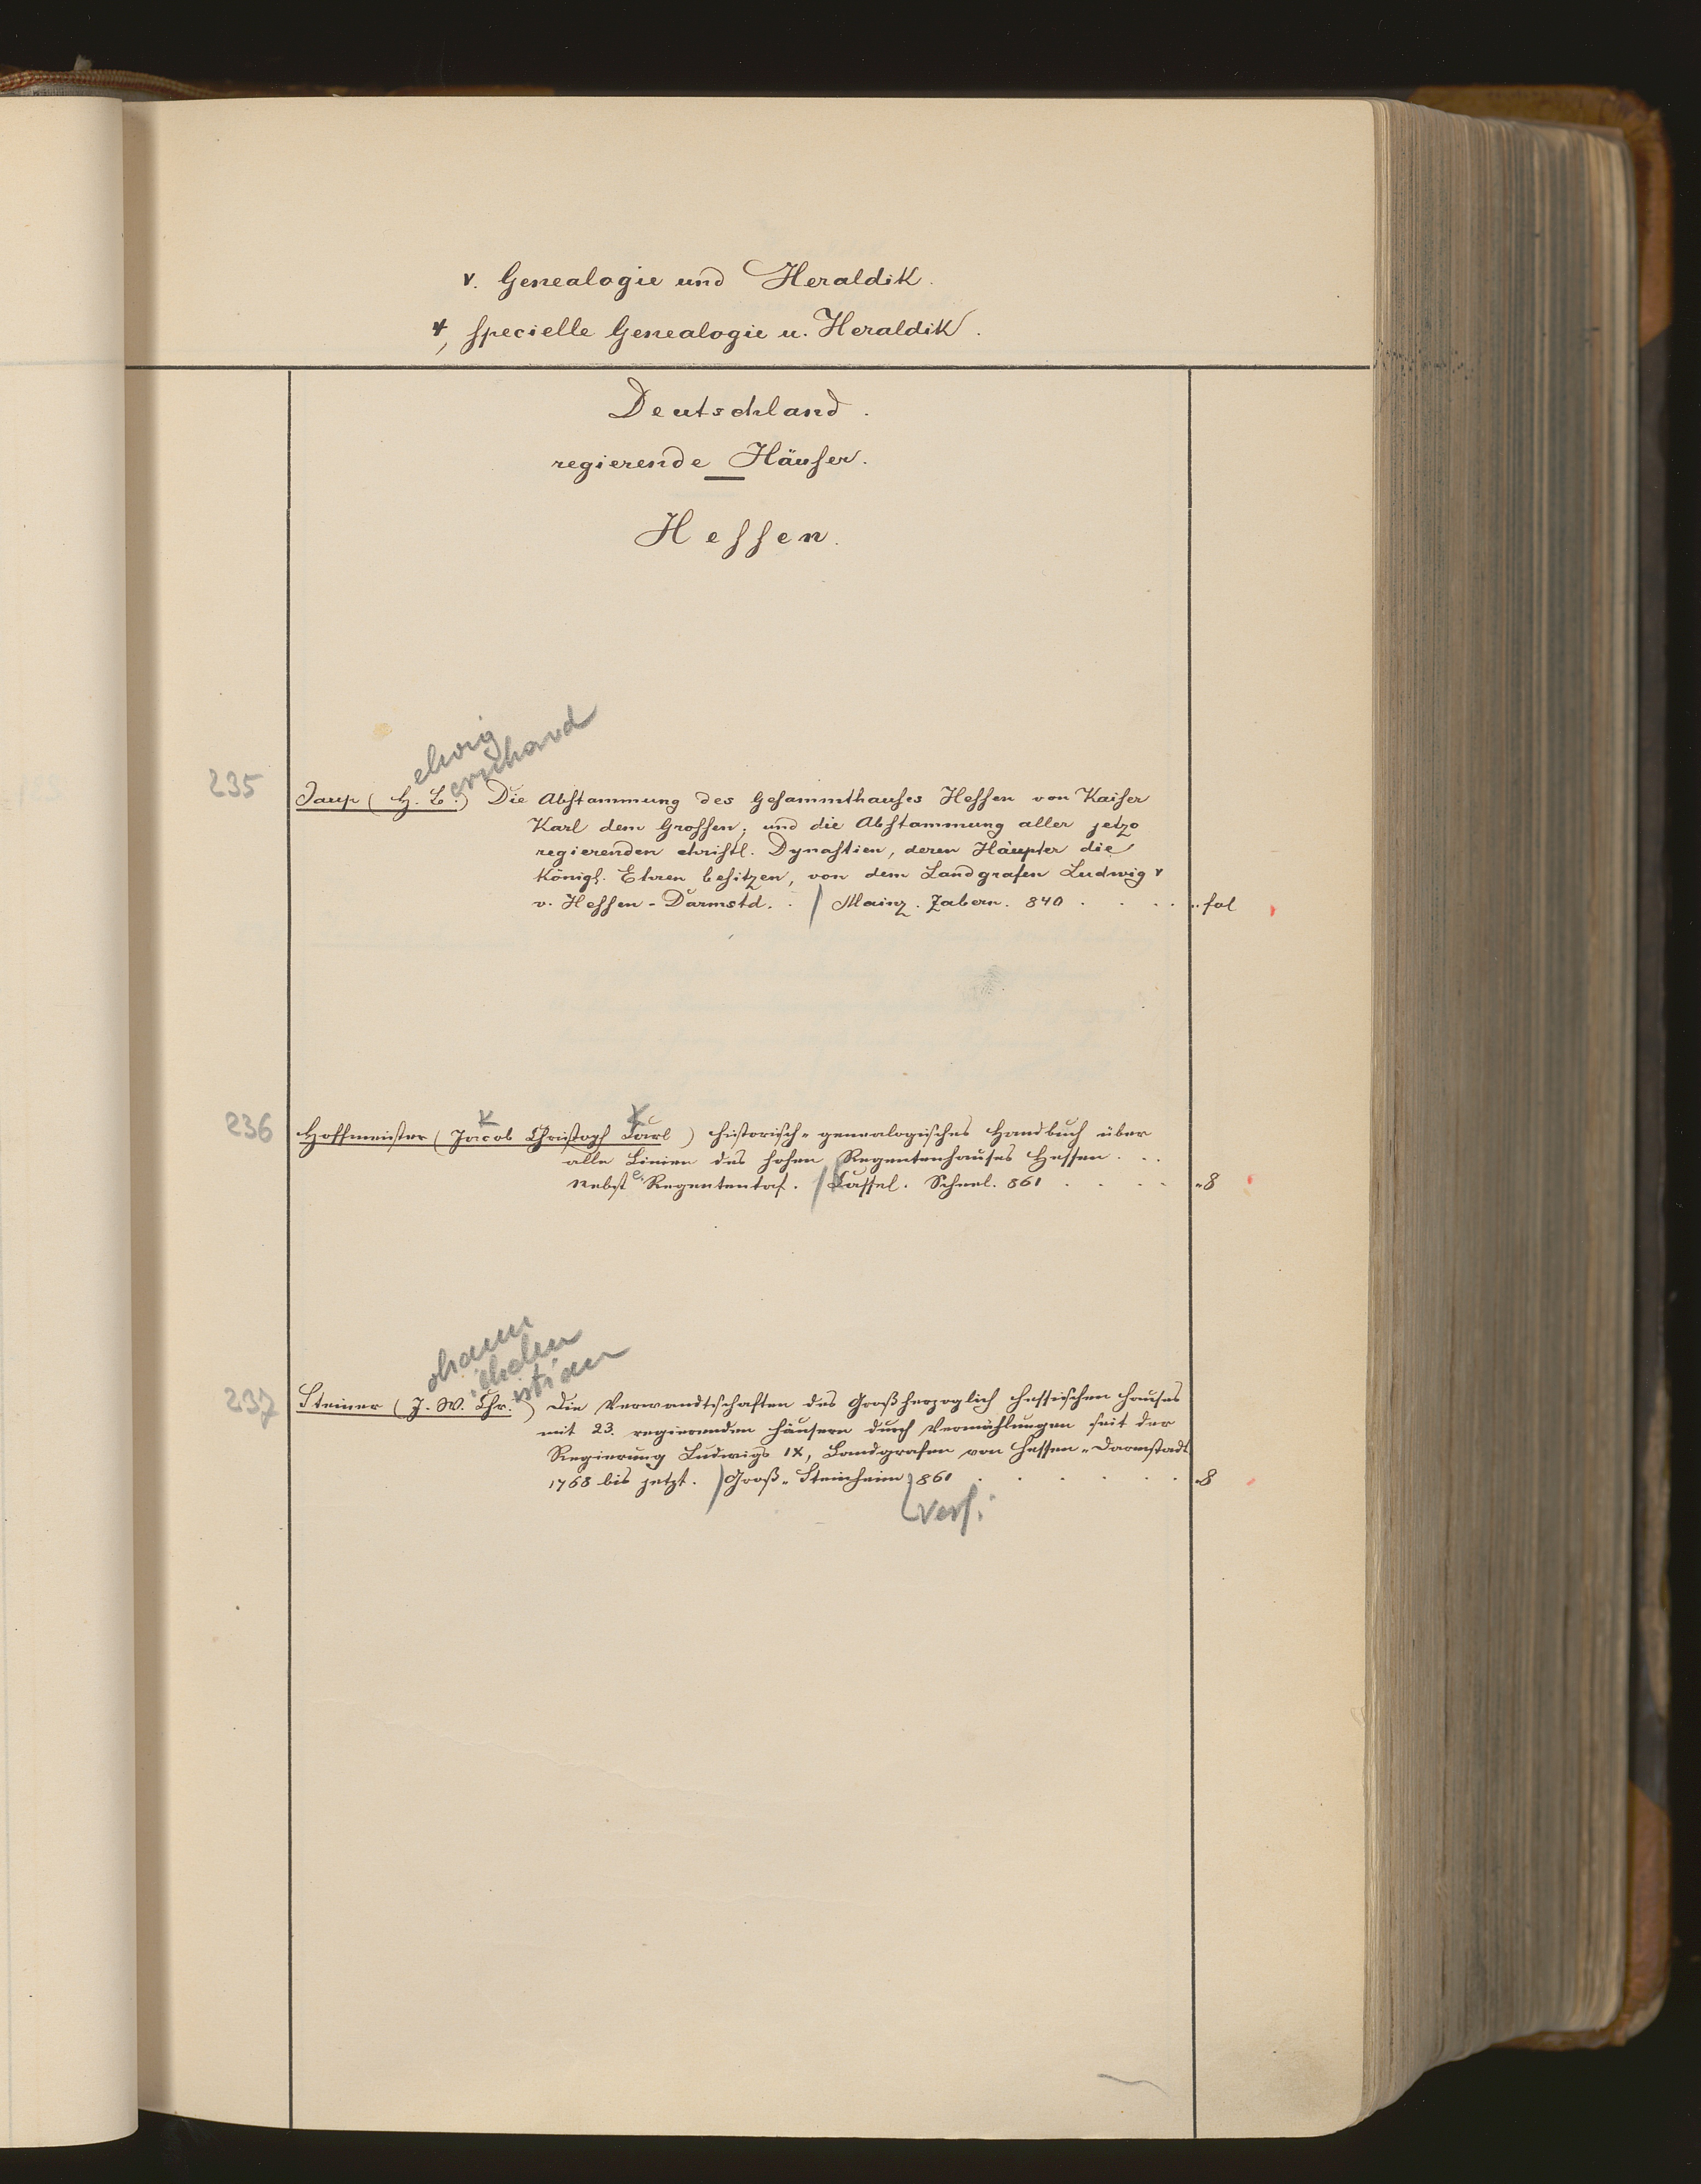 v. Genealogie und Heraldik.
4, specielle Genealogie u. Heraldik.
Deutschland.
regierende Häuser.
Hessen.
elwig
ernhard
235 Jaup (H. B.) Die Abstammung des Gesammthauses Hessen von Kaiser
Karl dem Grossen; und die Abstammung aller jetzo
regierenden christl. Dynastien, deren Häupter die
Königl. Ehren besitzen, von dem Landgrafen Ludwig v
v. Hessen-Darmstd. . / Mainz. Zabern. 840 . . . . fol
K K
236 Hoffmeister (Jacob Christoph Carl) historisch-genealogisches Handbuch über
alle Linien des hohen Regentenhauses Hessen. . .
Nebst e. Regententaf. / Cassel. Scheel. 861 . . . . 8
ohann
ilhelm
istian
237 Steiner (J. W. Chr.) Die Verwandtschaften des Großherzoglich hessischen Hauses
mit 23. regierenden Häusern durch Vermählungen seit der
Regierung Ludwigs IX, Landgrafen von Hessen-Darmstadt
1768 bis jetzt. / Groß-Steinheim. 861 . . . . . . 8
Verf.